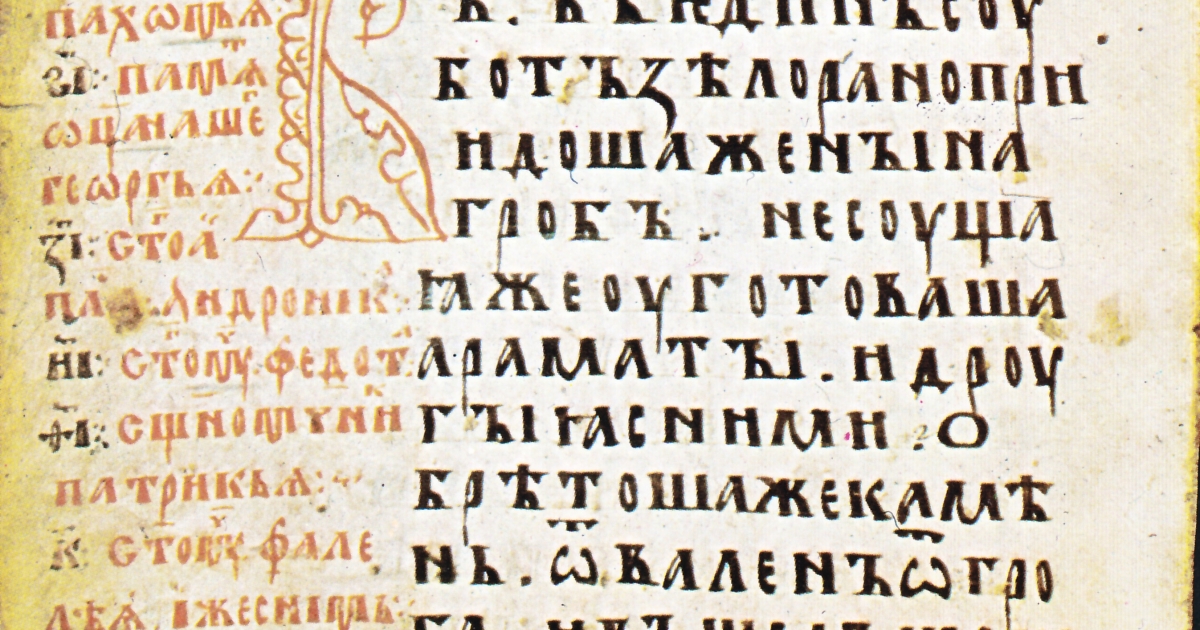 пахомьѧ
В҃І: памѧ
ѡцанаше
геѡргьѧ:
З҃І: стоа
па андроник
Н҃І: стому федот
Ѳ҃І: сщномунн
патрикьѧ:
К҃ стому фале
в. въединѫсоу
ботъꙁѣлораноприи
идошаженꙑна
гробъ. несоуща
ꙗжеоуготоваша
араматꙑ. идроу
гꙑꙗсними. о
брѣтошажекамѣ
нь. ѿваленъѿгро